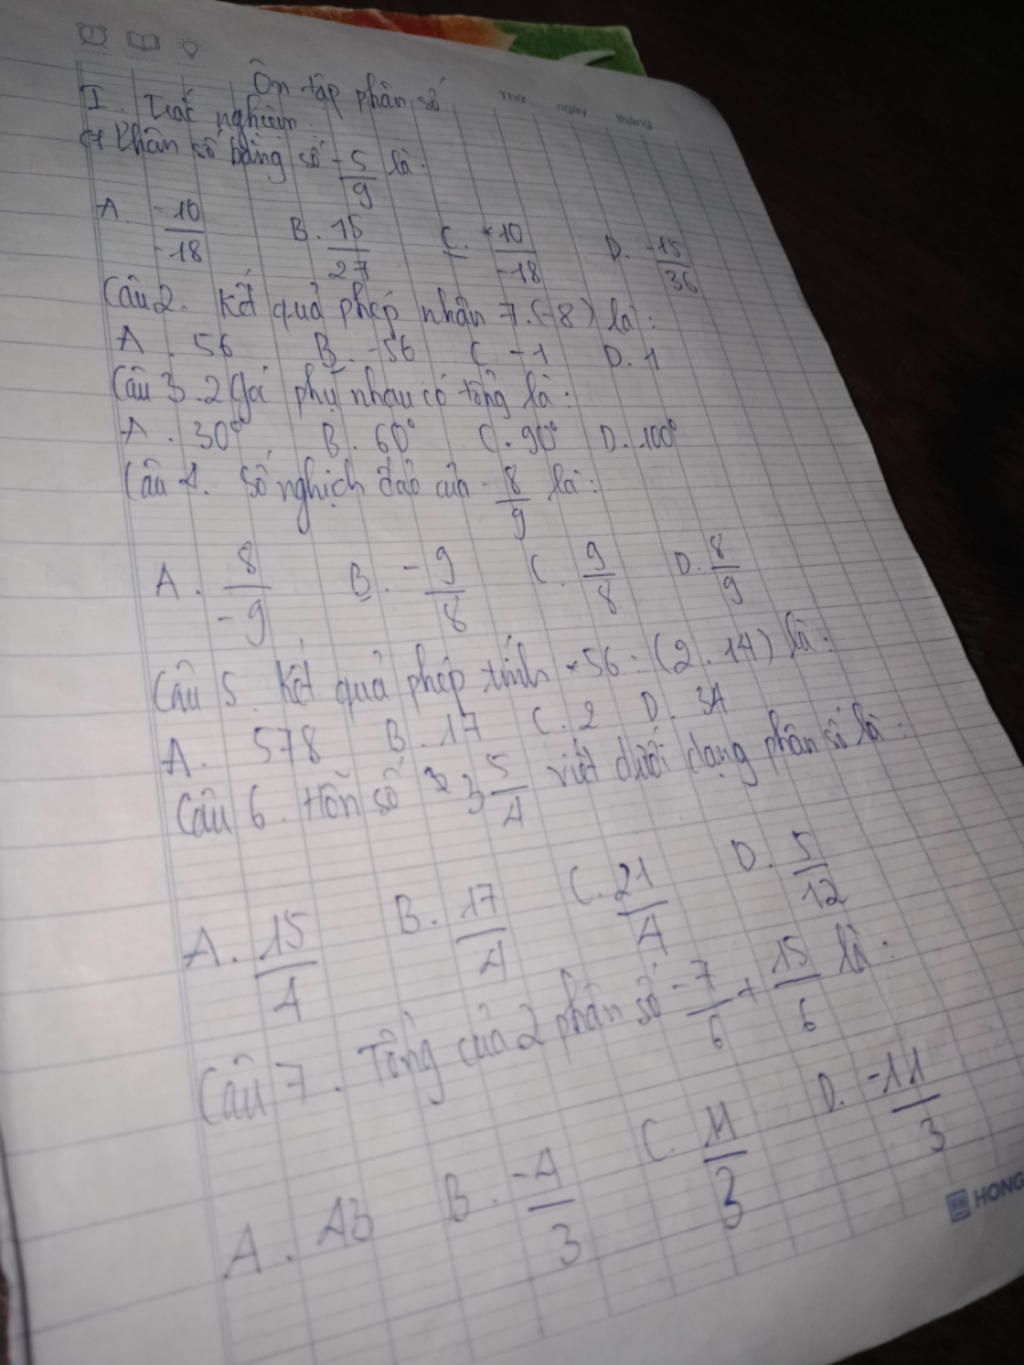 Thứ ngày tháng
Ôn tập phân số
I. Trắc nghiệm
C1 Phân số bằng số -5/9 là:
A. -10/-18 B. 15/27 C. 10/-18 D. -15/36
Câu 2. Kết quả phép nhân 7.(-8) là:
A. 56 B. -56 C. -1 D. 1
Câu 3. 2 góc phụ nhau có tổng là:
A. 30° B. 60° C. 90° D. 100°
Câu 4. Số nghịch đảo của -8/9 là:
A. 8/-9 B. -9/8 C. 9/8 D. 8/9
Câu 5. Kết quả phép tính 56 : (2.14) là:
A. 578 B. 17 C. 2 D. 34
Câu 6. Hỗn số 3 5/4 viết dưới dạng phân số là:
A. 15/4 B. 17/4 C. 21/4 D. 5/12
Câu 7. Tổng của 2 phân số -7/6 + 15/6 là:
A. 43 B. -4/3 C. 11/3 D. -11/3
HONG